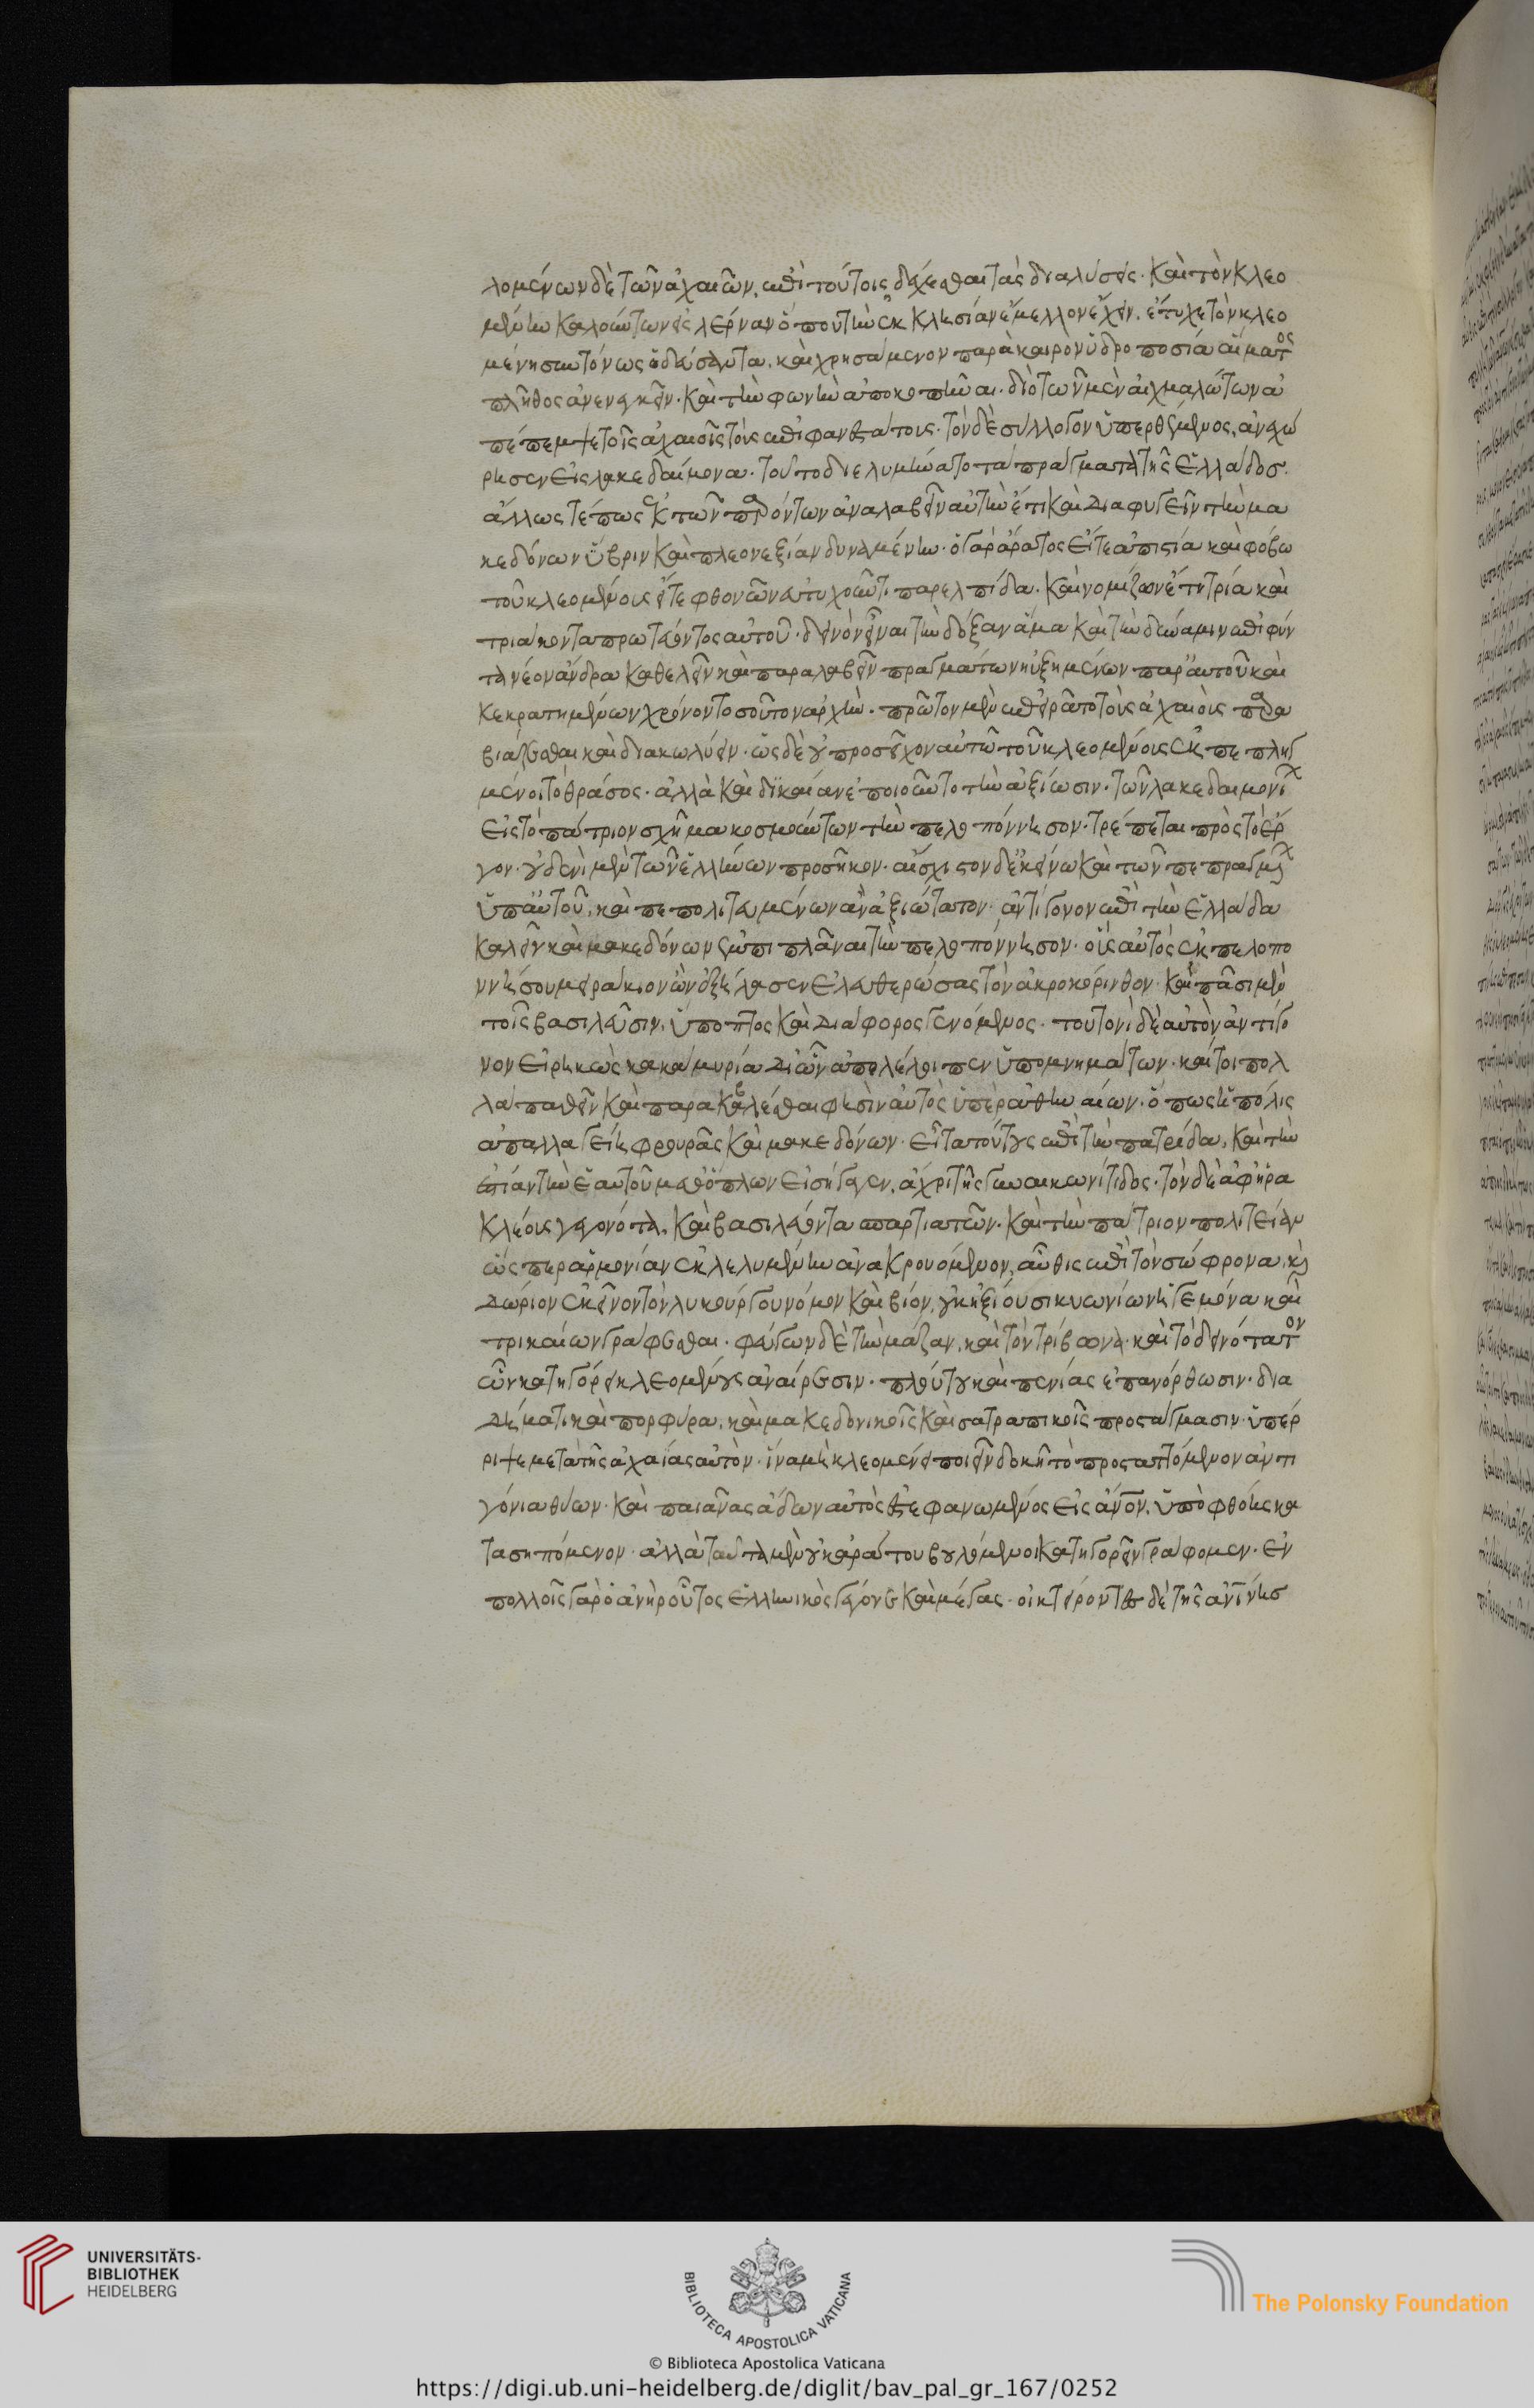 λομένων δὲ τῶν ἀχαιῶν, ἐπὶ τούτοις δέχεσθαι τὰς διαλύσεις· καὶ τὸν κλεο
μένην καλούντων εἰς λέρναν ὅπου τὴν ἐκκλησίαν ἔμελλον ἔχειν. ἔτυχε τὸν κλεο
μένη συντόνως ὁδεύσαντα. καὶ χρησάμενον παρὰ καιρὸν ὑδροποσία αἵματος
πλῆθος ἀνενεγκεῖν. καὶ τὴν φωνὴν ἀποκοπῆναι. διὸ τῶν μὲν αἰχμαλώτων ἀ
πέπεμψε τοῖς ἀχαιοῖς τοὺς ἐπιφανεστάτους. τὸν δὲ σύλλογον ὑπερθέμενος, ἀνεχώ
ρησεν εἰς λακεδαίμονα. τοῦτο διελυμήνατο τὰ πράγματα τῆς ἑλλάδοσ.
ἄλλως τέ πως ἐκ τῶν παρόντων ἀναλαβεῖν αὑτὴν ἔτι καὶ διαφυγεῖν τὴν μα
κεδόνων ὕβριν καὶ πλεονεξίαν δυναμένην. ὁ γὰρ ἄρατος εἴτε ἀπιστία καὶ φόβω
τοῦ κλεομένους εἴτε φθονῶν εὐτυχοῦντι παρ ἐλπίδα. καὶ νομίζων ἔτη τρία καὶ
τριάκοντα πρωτεύοντος αὐτοῦ. δεινὸν εἶναι τὴν δόξαν ἅμα καὶ τὴν δύναμιν ἐπιφύν
τα νέον ἄνδρα καθελεῖν καὶ παραλαβεῖν πραγμάτων ηὐξημένων παρ αὐτοῦ καὶ
κεκρατημένων χρόνον τοσοῦτον ἀρχὴν. πρῶτον μὲν ἐπειρᾶτο τοὺς ἀχαιοὺς παρα
βιάζεσθαι καὶ διακωλύειν. ὡς δὲ οὐ προσεῖχον αὐτῶ τοῦ κλεομένους ἐκπεπληγ
μένοι τὸ θράσος. ἀλλὰ καὶ δικαίαν ἐποιοῦντο τὴν ἀξίωσιν. τῶν λακεδαιμονίων
εἰς τὸ πάτριον σχῆμα κοσμούντων τὴν πελοπόννησον. τρέπεται πρὸς τὸ ἔρ
γον. οὐδενὶ μὲν τῶν ἑλλήνων προσῆκον. αἴσχιστον δ ἐκείνω καὶ τῶν πεπραγμένων
ὑπ αὐτοῦ, καὶ πεπολιτευμένων ἀναξιώτατον. ἀντίγονον ἐπὶ τὴν ἑλλάδα
καλεῖν καὶ μακεδόνων ἐμπιπλάναι τὴν πελοπόννησον. οὓς αὐτὸς ἐκ πελοπο
ννήσου μειράκιον ὢν ἐξήλασεν ἐλευθερώσας τὸν ἀκροκόρινθον. καὶ πᾶσι μὲν
τοῖς βασιλεῦσιν, ὕποπτος καὶ διάφορος γενόμενος. τουτονὶ δὲ αὐτὸν ἀντίγο
νον εἰρηκὼς κακὰ μυρία δι ὧν ἀπολέλοιπεν ὑπομνημάτων. καίτοι πολ
λὰ παθεῖν καὶ παραβαλέσθαι φησὶν αὐτὸς ὑπὲρ ἀθηναίων. ὅπως ἡ πόλις
ἀπαλλαγείη φρουρᾶς καὶ μακεδόνων. εἶτα τούτους ἐπὶ τὴν πατρίδα, καὶ τὴν
ἑστίαν τὴν ἑαυτοῦ μεθ ὅπλων εἰσήγαγεν, ἄχρι τῆς γυναικωνίτιδος. τὸν δὲ ἀφ ἡρα
κλέους γεγονότα, καὶ βασιλεύοντα σπαρτιατῶν. καὶ τὴν πάτριον πολιτείαν
ὥσπερ ἁρμονίαν ἐκλελυμένην ἀνακρουόμενον, αὖθις ἐπὶ τὸν σώφρονα, καὶ
δώριον ἐκεῖνον τὸν λυκούργου νόμον καὶ βίον, οὐκ ἠξίου σικυωνίων ἡγεμόνα καὶ
τρικαίων γράφεσθαι. φεύγων δὲ τὴν μάζαν, καὶ τὸν τρίβωνα. καὶ τὸ δεινότατον
ὧν κατηγόρει κλεομένους ἀναίρεσιν. πλούτου καὶ πενίας ἐπανόρθωσιν. δια
δήματι καὶ πορφύρα, καὶ μακεδονικοῖς καὶ σατραπικοῖς προστάγμασιν. ὑπέρ
ριψε μετὰ τῆς ἀχαίας αὑτὸν. ἵνα μὴ κλεομένει ποιεῖν δοκῆ τὸ προσταττόμενον ἀντι
γόνια θύων. καὶ παιᾶνας ἄδων αὐτὸς ἐστεφανωμένος εἰς ἄνον, ὑπὸ φθόης κα
τασηπόμενον. ἀλλὰ ταῦτα μὲν οὐκ ἀράτου βουλόμενοι κατηγορεῖν γράφομεν. ἐν
πολλοῖς γὰρ ὁ ἀνὴρ οὗτος ἑλληνικὸς γέγονε καὶ μέγας. οἰκτείροντες δὲ τῆς ἀνίνησ
UNIVERSITÄTS-
BIBLIOTHEK
HEIDELBERG
BIBLIOTECA APOSTOLICA VATICANA
The Polonsky Foundation
© Biblioteca Apostolica Vaticana
https://digi.ub.uni-heidelberg.de/diglit/bav_pal_gr_167/0252